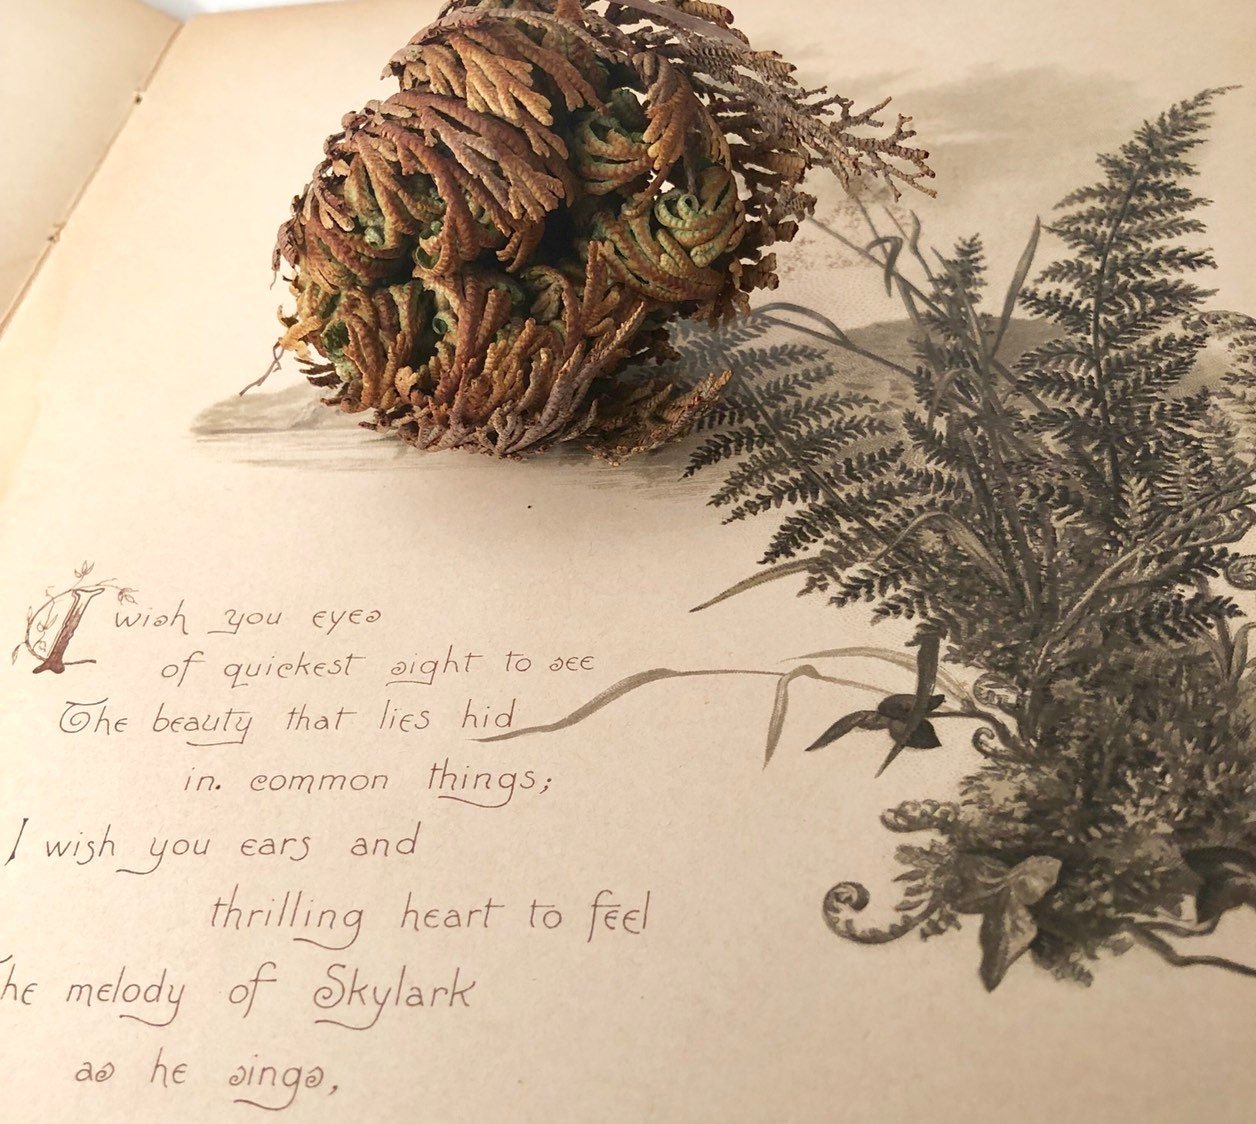 I wish you eyes
of quickest sight to see
The beauty that lies hid
in. common things;
I wish you ears and
thrilling heart to feel
The melody of Skylark
as he sings,